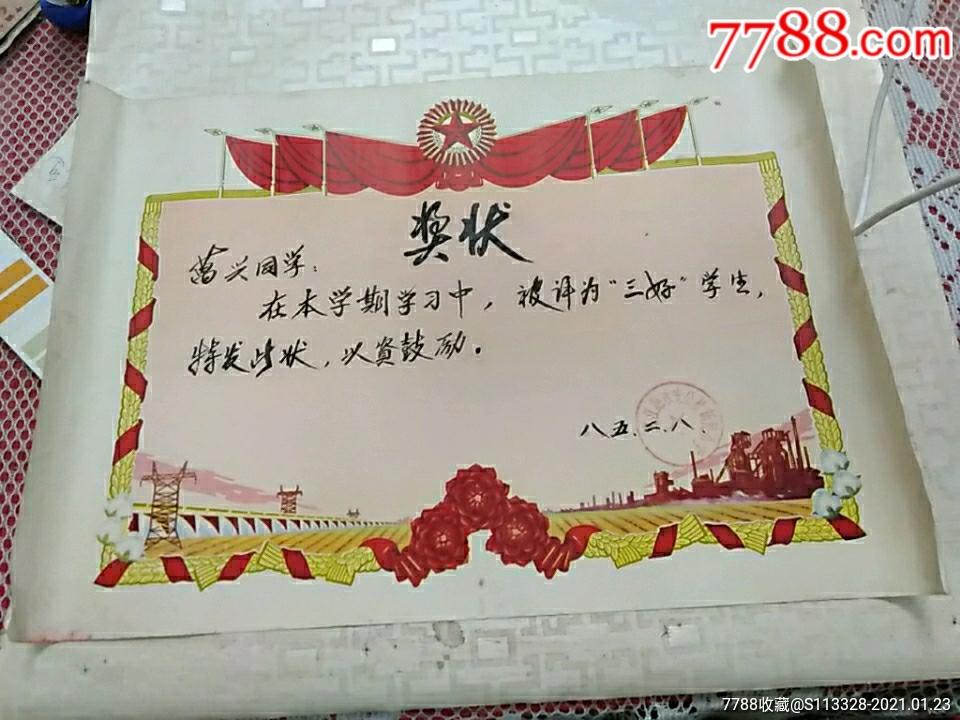 7788.com
奖状
兴同学：
在本学期学习中，被评为"三好"学生，
特发此状，以资鼓励。
八五.二.八.
7788收藏@S113328-2021.01.23